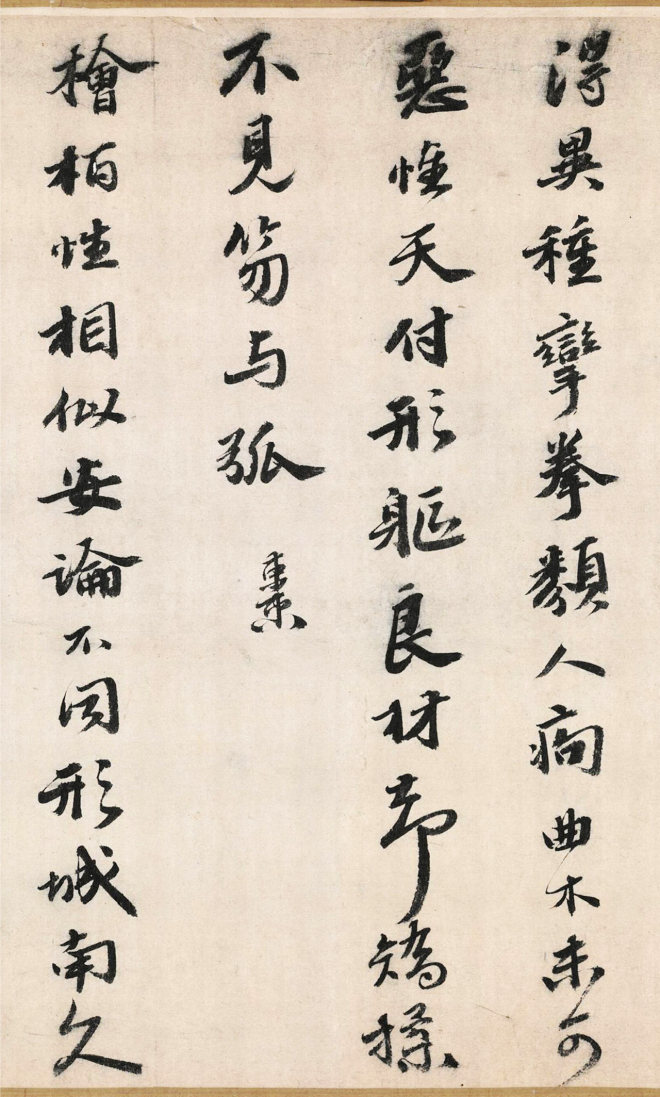 得異種攣拳類人痀曲木未可
惡惟天付形軀良材却矯揉
不見笏与弧 棗
檜柏性相似安論不同形城南久